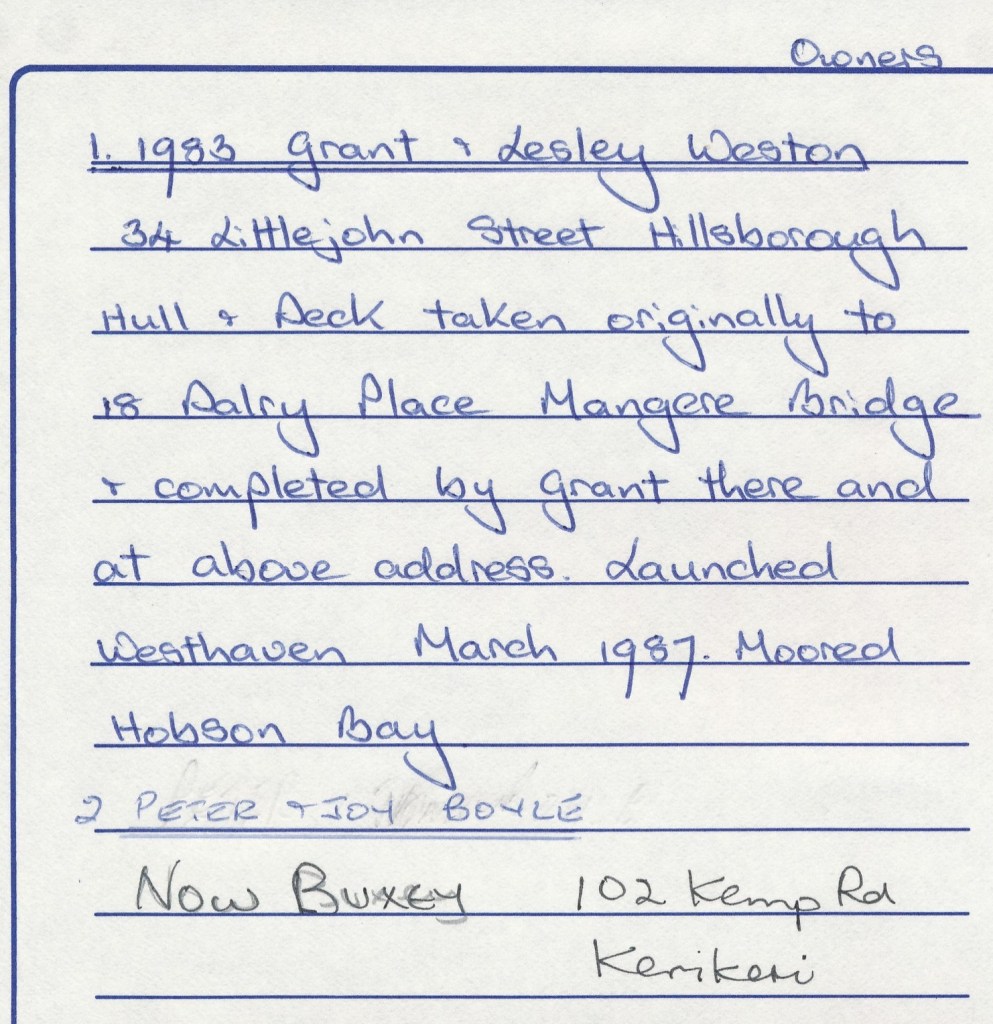 Owners
1. 1983 Grant & Lesley Weston
34 Littlejohn Street Hillsborough
Hull & Deck taken originally to
18 Dalry Place Mangere Bridge
& completed by Grant there and
at above address. Launched
Westhaven March 1987. Moored
Hobson Bay.
2 PETER & JOY BOYLE
Now Buxey 102 Kemp Rd
Kerikeri